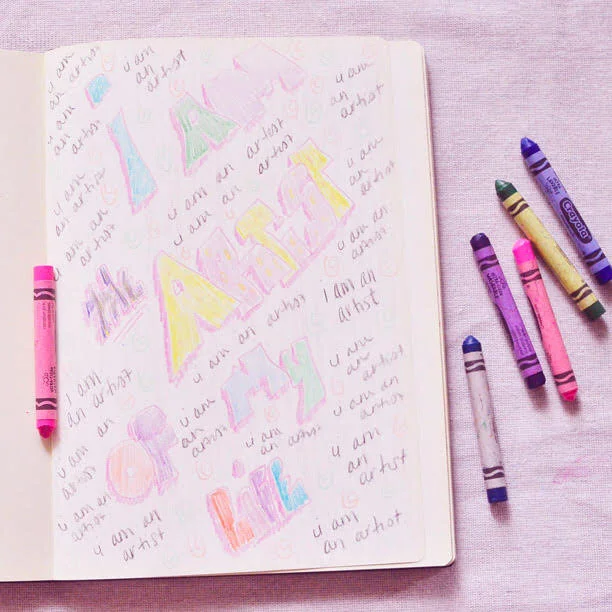 i am
an artist
i am
an
artist
i am
an
artist
i am
an
artist
i AM
i am an artist
i am an artist
i am
an
artist
i am
an
artist
i am an
artist
the
ARTIST
i am an
artist
I am an
artist
i am an artist
I am
an artist
i am
an
artist
MY
i am
an
artist
i am an
artist
i am an
artist
OF
i am an artist
i am
an
artist
i am an
artist
i am an
artist
LIFE
i am
an artist
Crayola